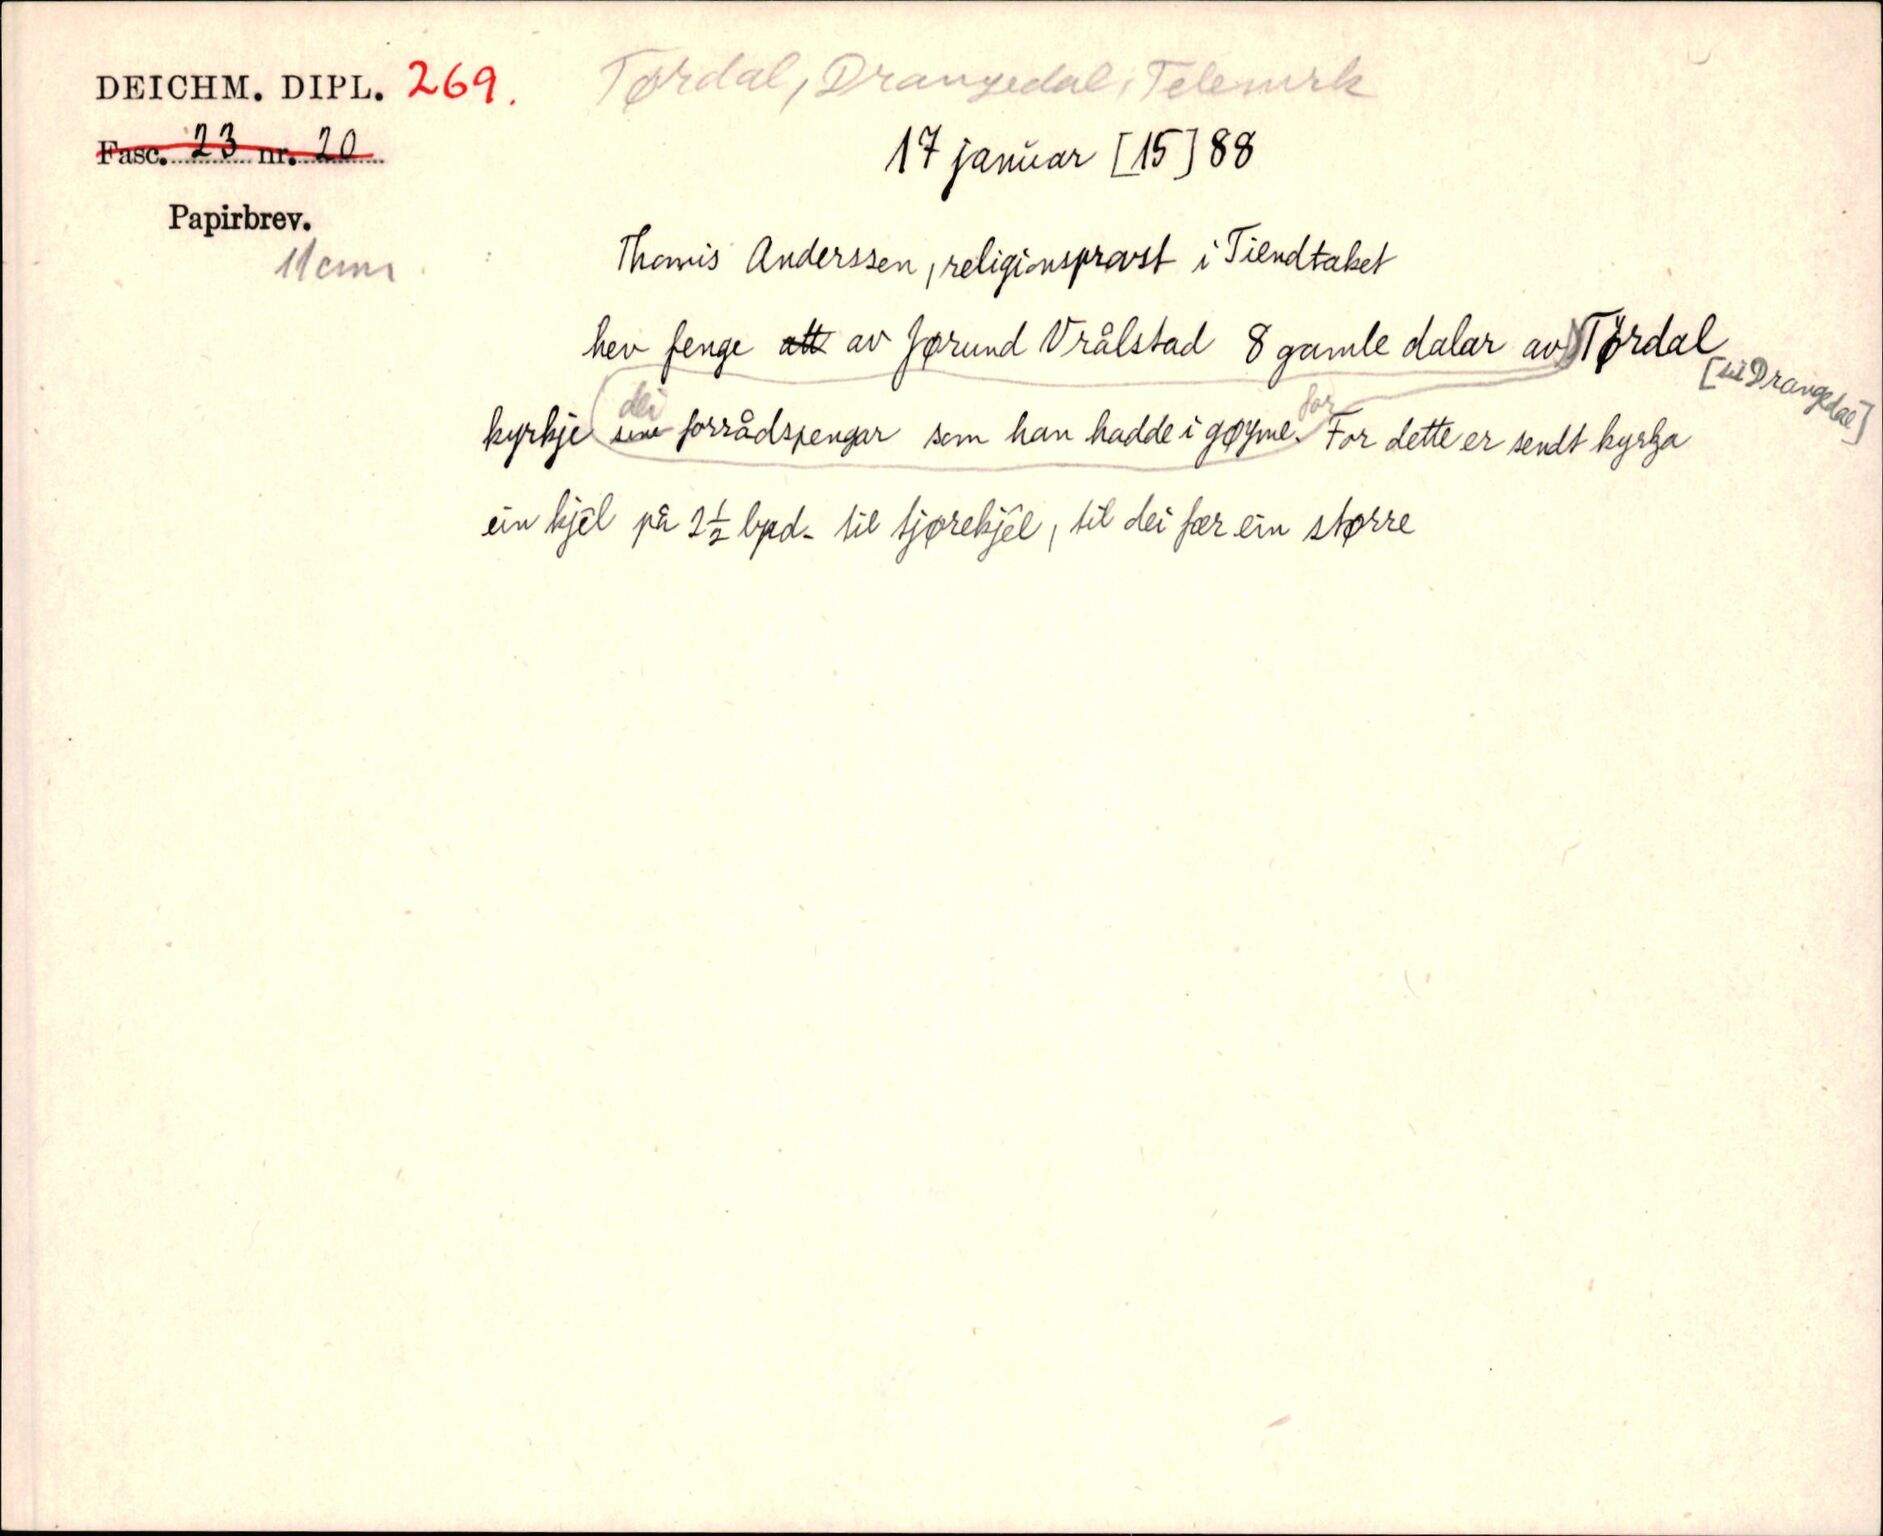 DEICHM. DIPL. 269.
Tørdal, Drangedal, Telemark
Fasc. 23 nr. 20
17 januar [15]88
Papirbrev.
11 cm
Thomis Anderssen, religionsprovst i Tiendtaket
hev fenge att av Jørund Vrålstad 8 gamle dalar av Tørdal
[i Drangedal]
dei for
kyrkje sine forrådspengar som han hadde i gøyme. For dette er sendt kyrkja
ein kjel på 2½ bpd. til tjørekjel, til dei fær ein større